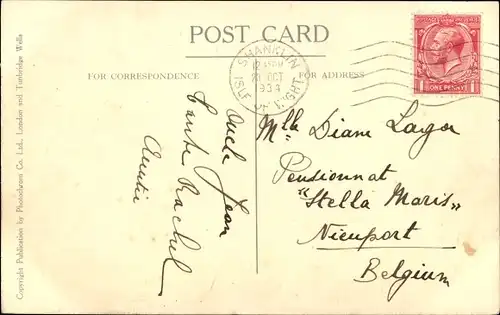 POST CARD
FOR CORRESPONDENCE
FOR ADDRESS
SHANKLIN
20 OCT
1934
ISLE OF WIGHT
POSTAGE
ONE PENNY
Oncle Jean
Tante Rachel
Auntie
Mlle Diane Layor
Pensionnat
"Stella Maris"
Nieuport
Belgium
Copyright Publication by Photochrom Co. Ltd., London and Tunbridge Wells